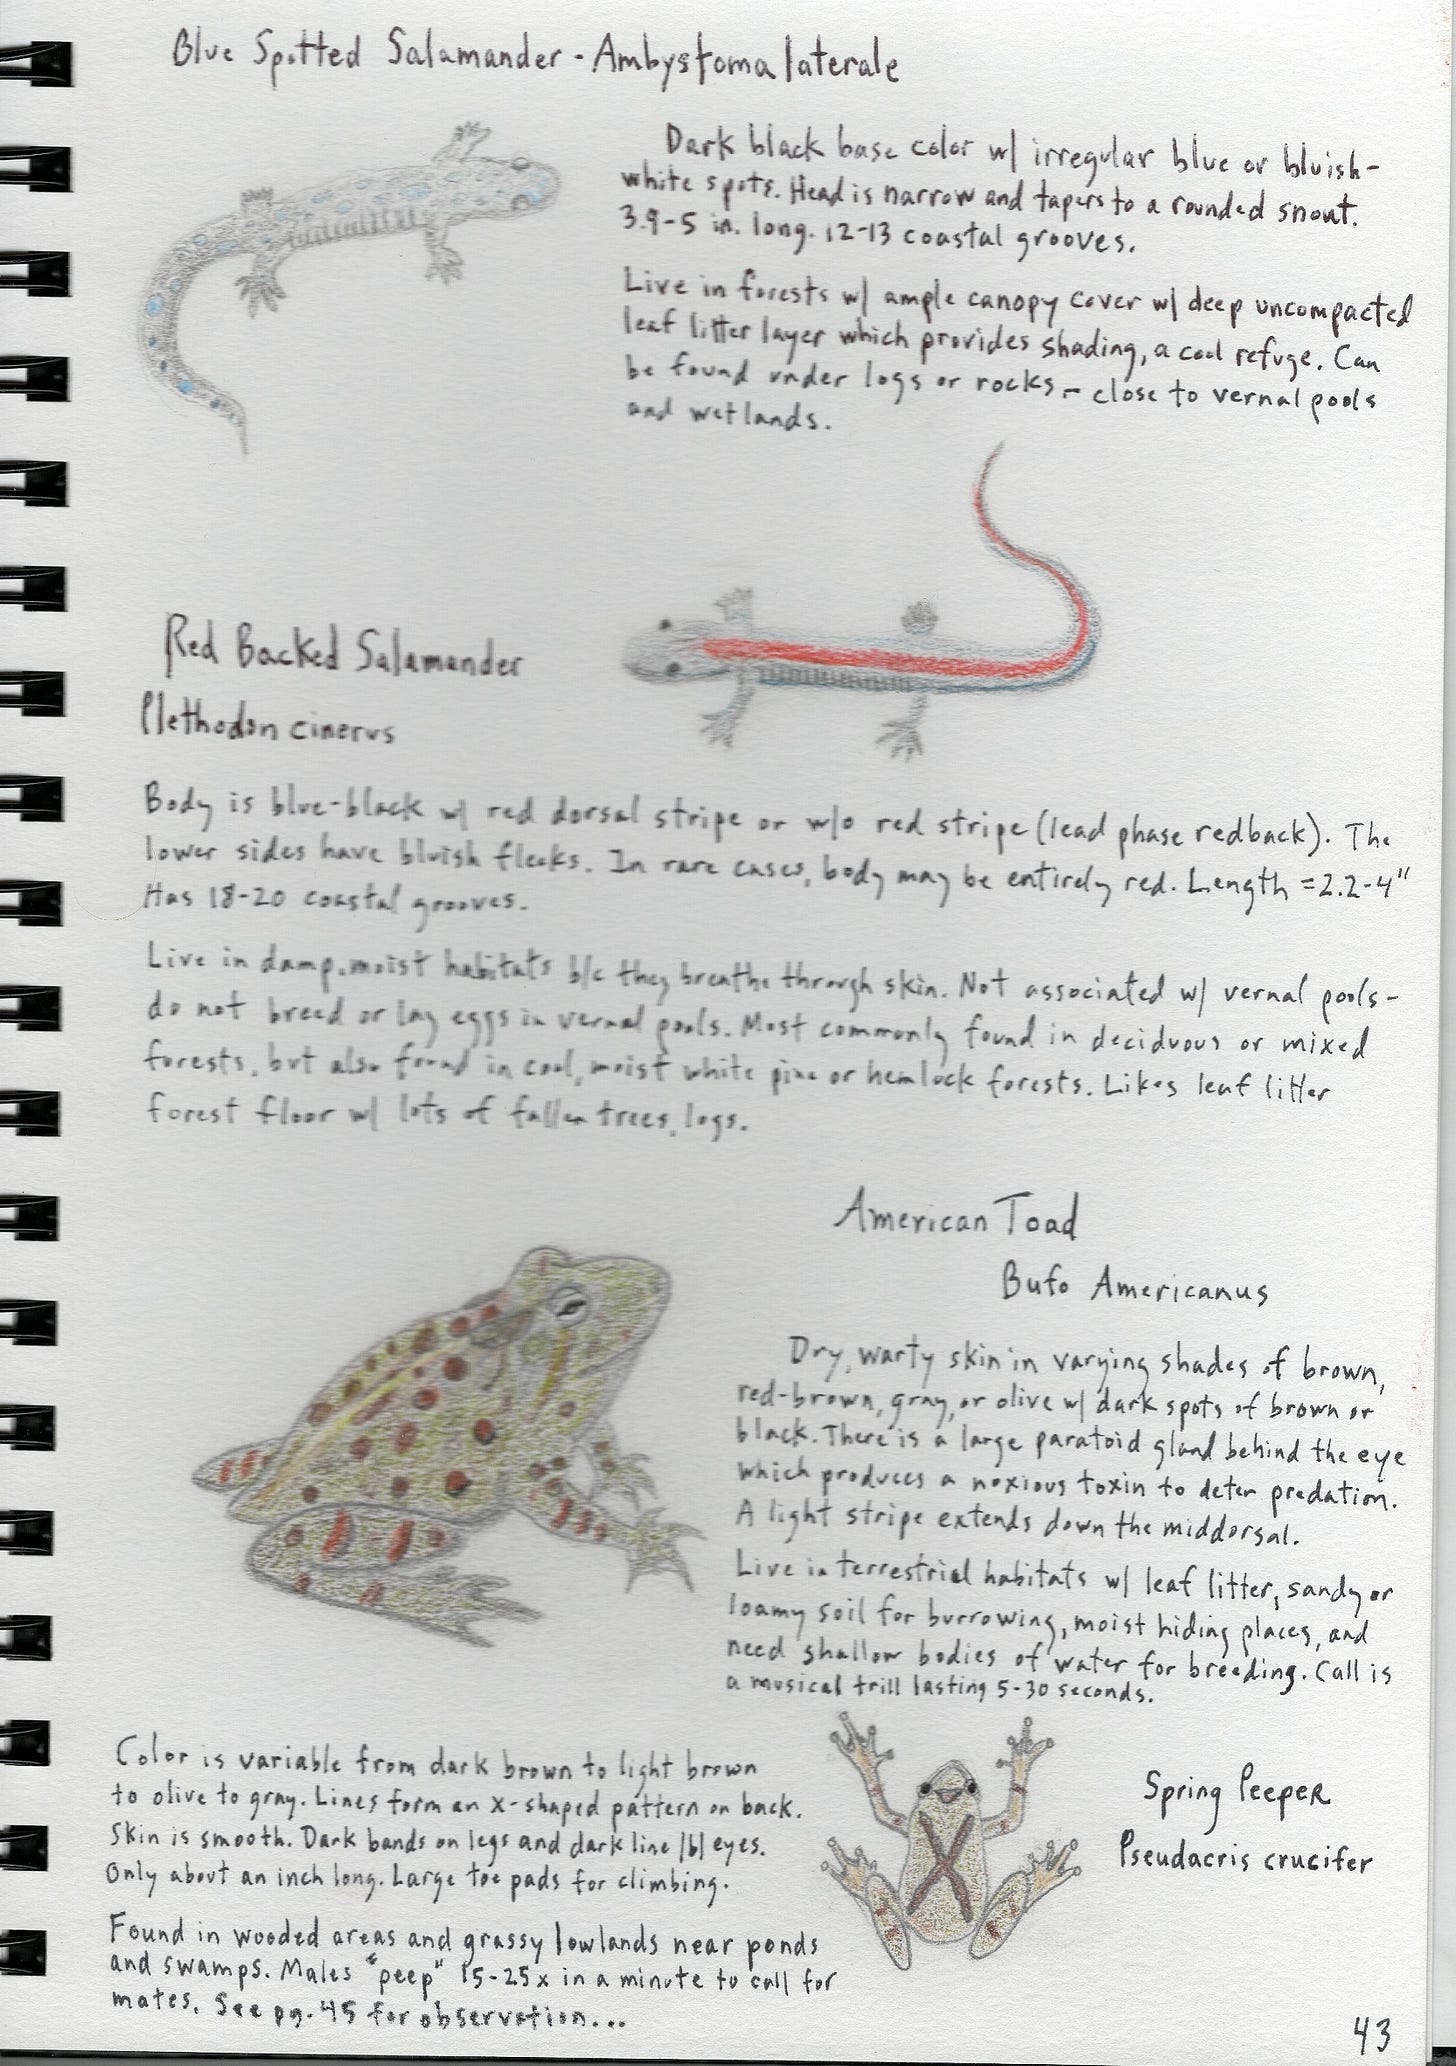 Blue Spotted Salamander - Ambystoma laterale
Dark black base color w/ irregular blue or bluish-
white spots. Head is narrow and tapers to a rounded snout.
3.9-5 in. long. 12-13 coastal grooves.
Live in forests w/ ample canopy cover w/ deep uncompacted
leaf litter layer which provides shading, a cool refuge. Can
be found under logs or rocks - close to vernal pools
and wetlands.
Red Backed Salamander
Plethodon cinerus
Body is blue-black w/ red dorsal stripe or w/o red stripe (lead phase redback). The
lower sides have bluish flecks. In rare cases, body may be entirely red. Length = 2.2-4"
Has 18-20 coastal grooves.
Live in damp, moist habitats b/c they breathe through skin. Not associated w/ vernal pools-
do not breed or lay eggs in vernal pools. Most commonly found in deciduous or mixed
forests, but also found in cool, moist white pine or hemlock forests. Likes leaf litter
forest floor w/ lots of fallen trees, logs.
American Toad
Bufo Americanus
Dry, warty skin in varying shades of brown,
red-brown, gray, or olive w/ dark spots of brown or
black. There is a large paratoid gland behind the eye
which produces a noxious toxin to deter predation.
A light stripe extends down the middorsal.
Live in terrestrial habitats w/ leaf litter, sandy or
loamy soil for burrowing, moist hiding places, and
need shallow bodies of water for breeding. Call is
a musical trill lasting 5-30 seconds.
Color is variable from dark brown to light brown
to olive to gray. Lines form an x-shaped pattern on back.
Skin is smooth. Dark bands on legs and dark line |b| eyes.
Only about an inch long. Large toe pads for climbing.
Found in wooded areas and grassy lowlands near ponds
and swamps. Males "peep" 15-25x in a minute to call for
mates. See pg. 45 for observation...
Spring Peeper
Pseudacris crucifer
43